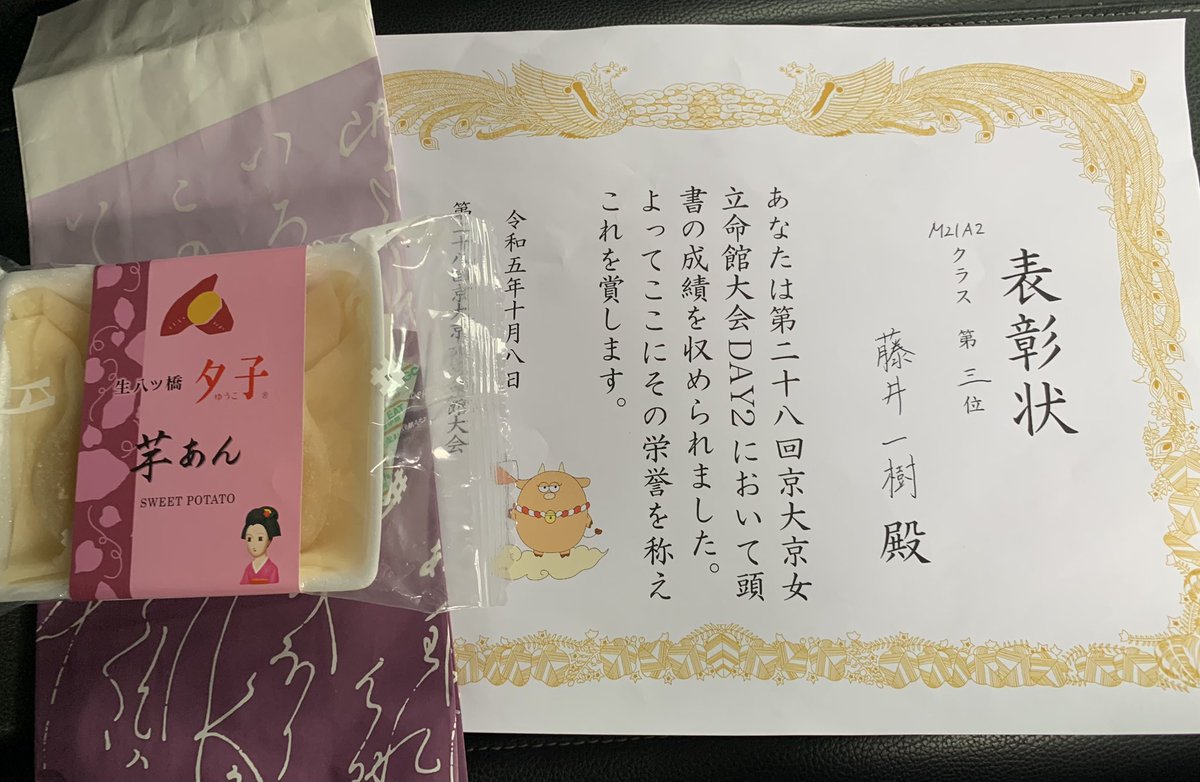 表彰状
M21A2
クラス 第三位
藤井一樹 殿
あなたは第二十八回京大京女
立命館大会DAY2において頭
書の成績を収められました。
よってここにその栄誉を称え
これを賞します。
令和五年十月八日
第二十八回京大京
館大会
生八ッ橋 夕子
ゆうこ
®
芋あん
SWEET POTATO